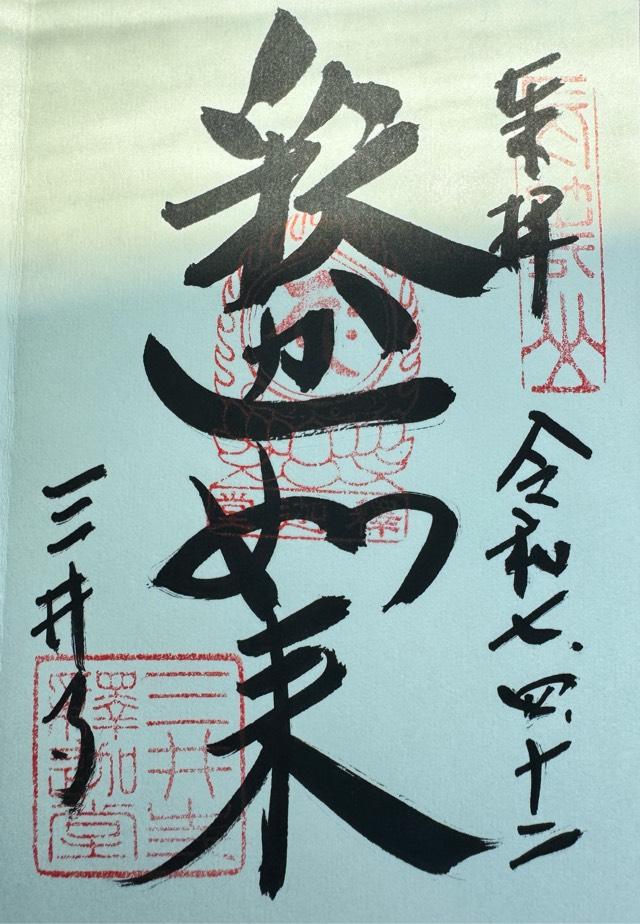 奉拝
令和七.四.十二
釈迦如来
三井寺
釋迦堂
三井寺
釋迦堂